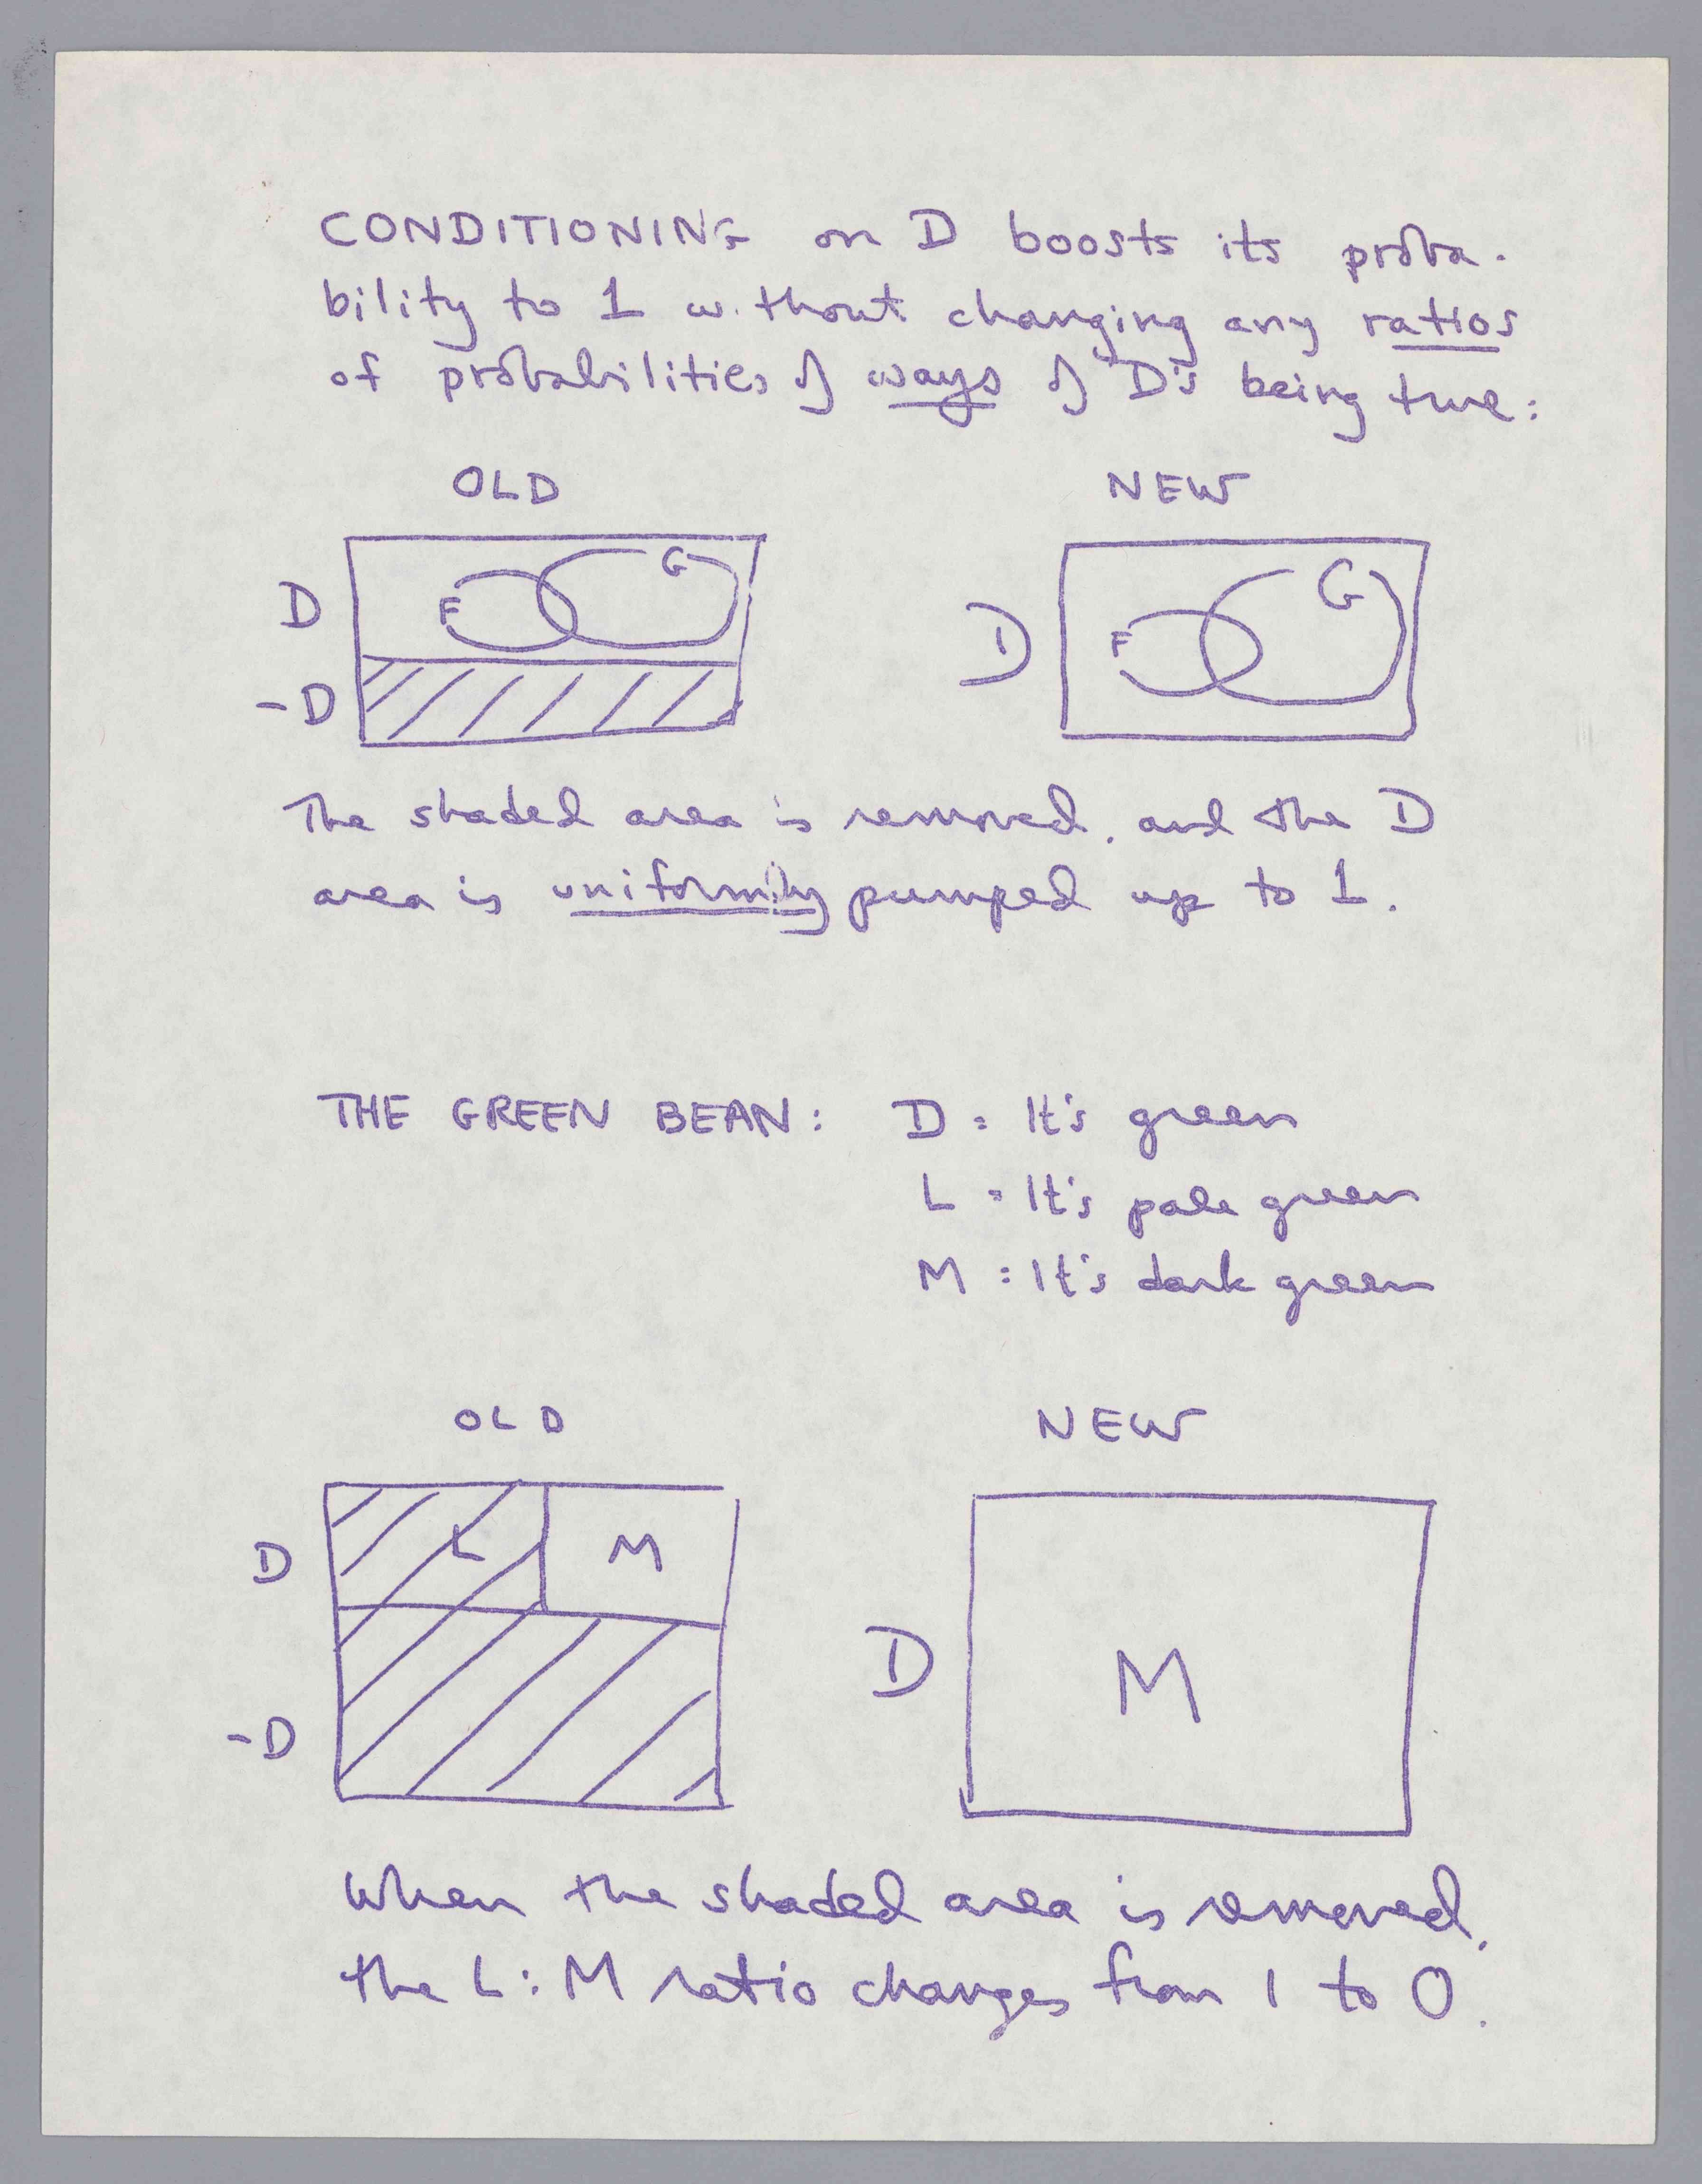 CONDITIONING on D boosts its proba-
bility to 1 without changing any ratios
of probabilities of ways of D's being true:
OLD NEW
D F G D F G
-D
The shaded area is removed, and the D
area is uniformly pumped up to 1.
THE GREEN BEAN: D = It's green
L = It's pale green
M = It's dark green
OLD NEW
D L M
D M
-D
When the shaded area is removed,
the L:M ratio changes from 1 to 0.